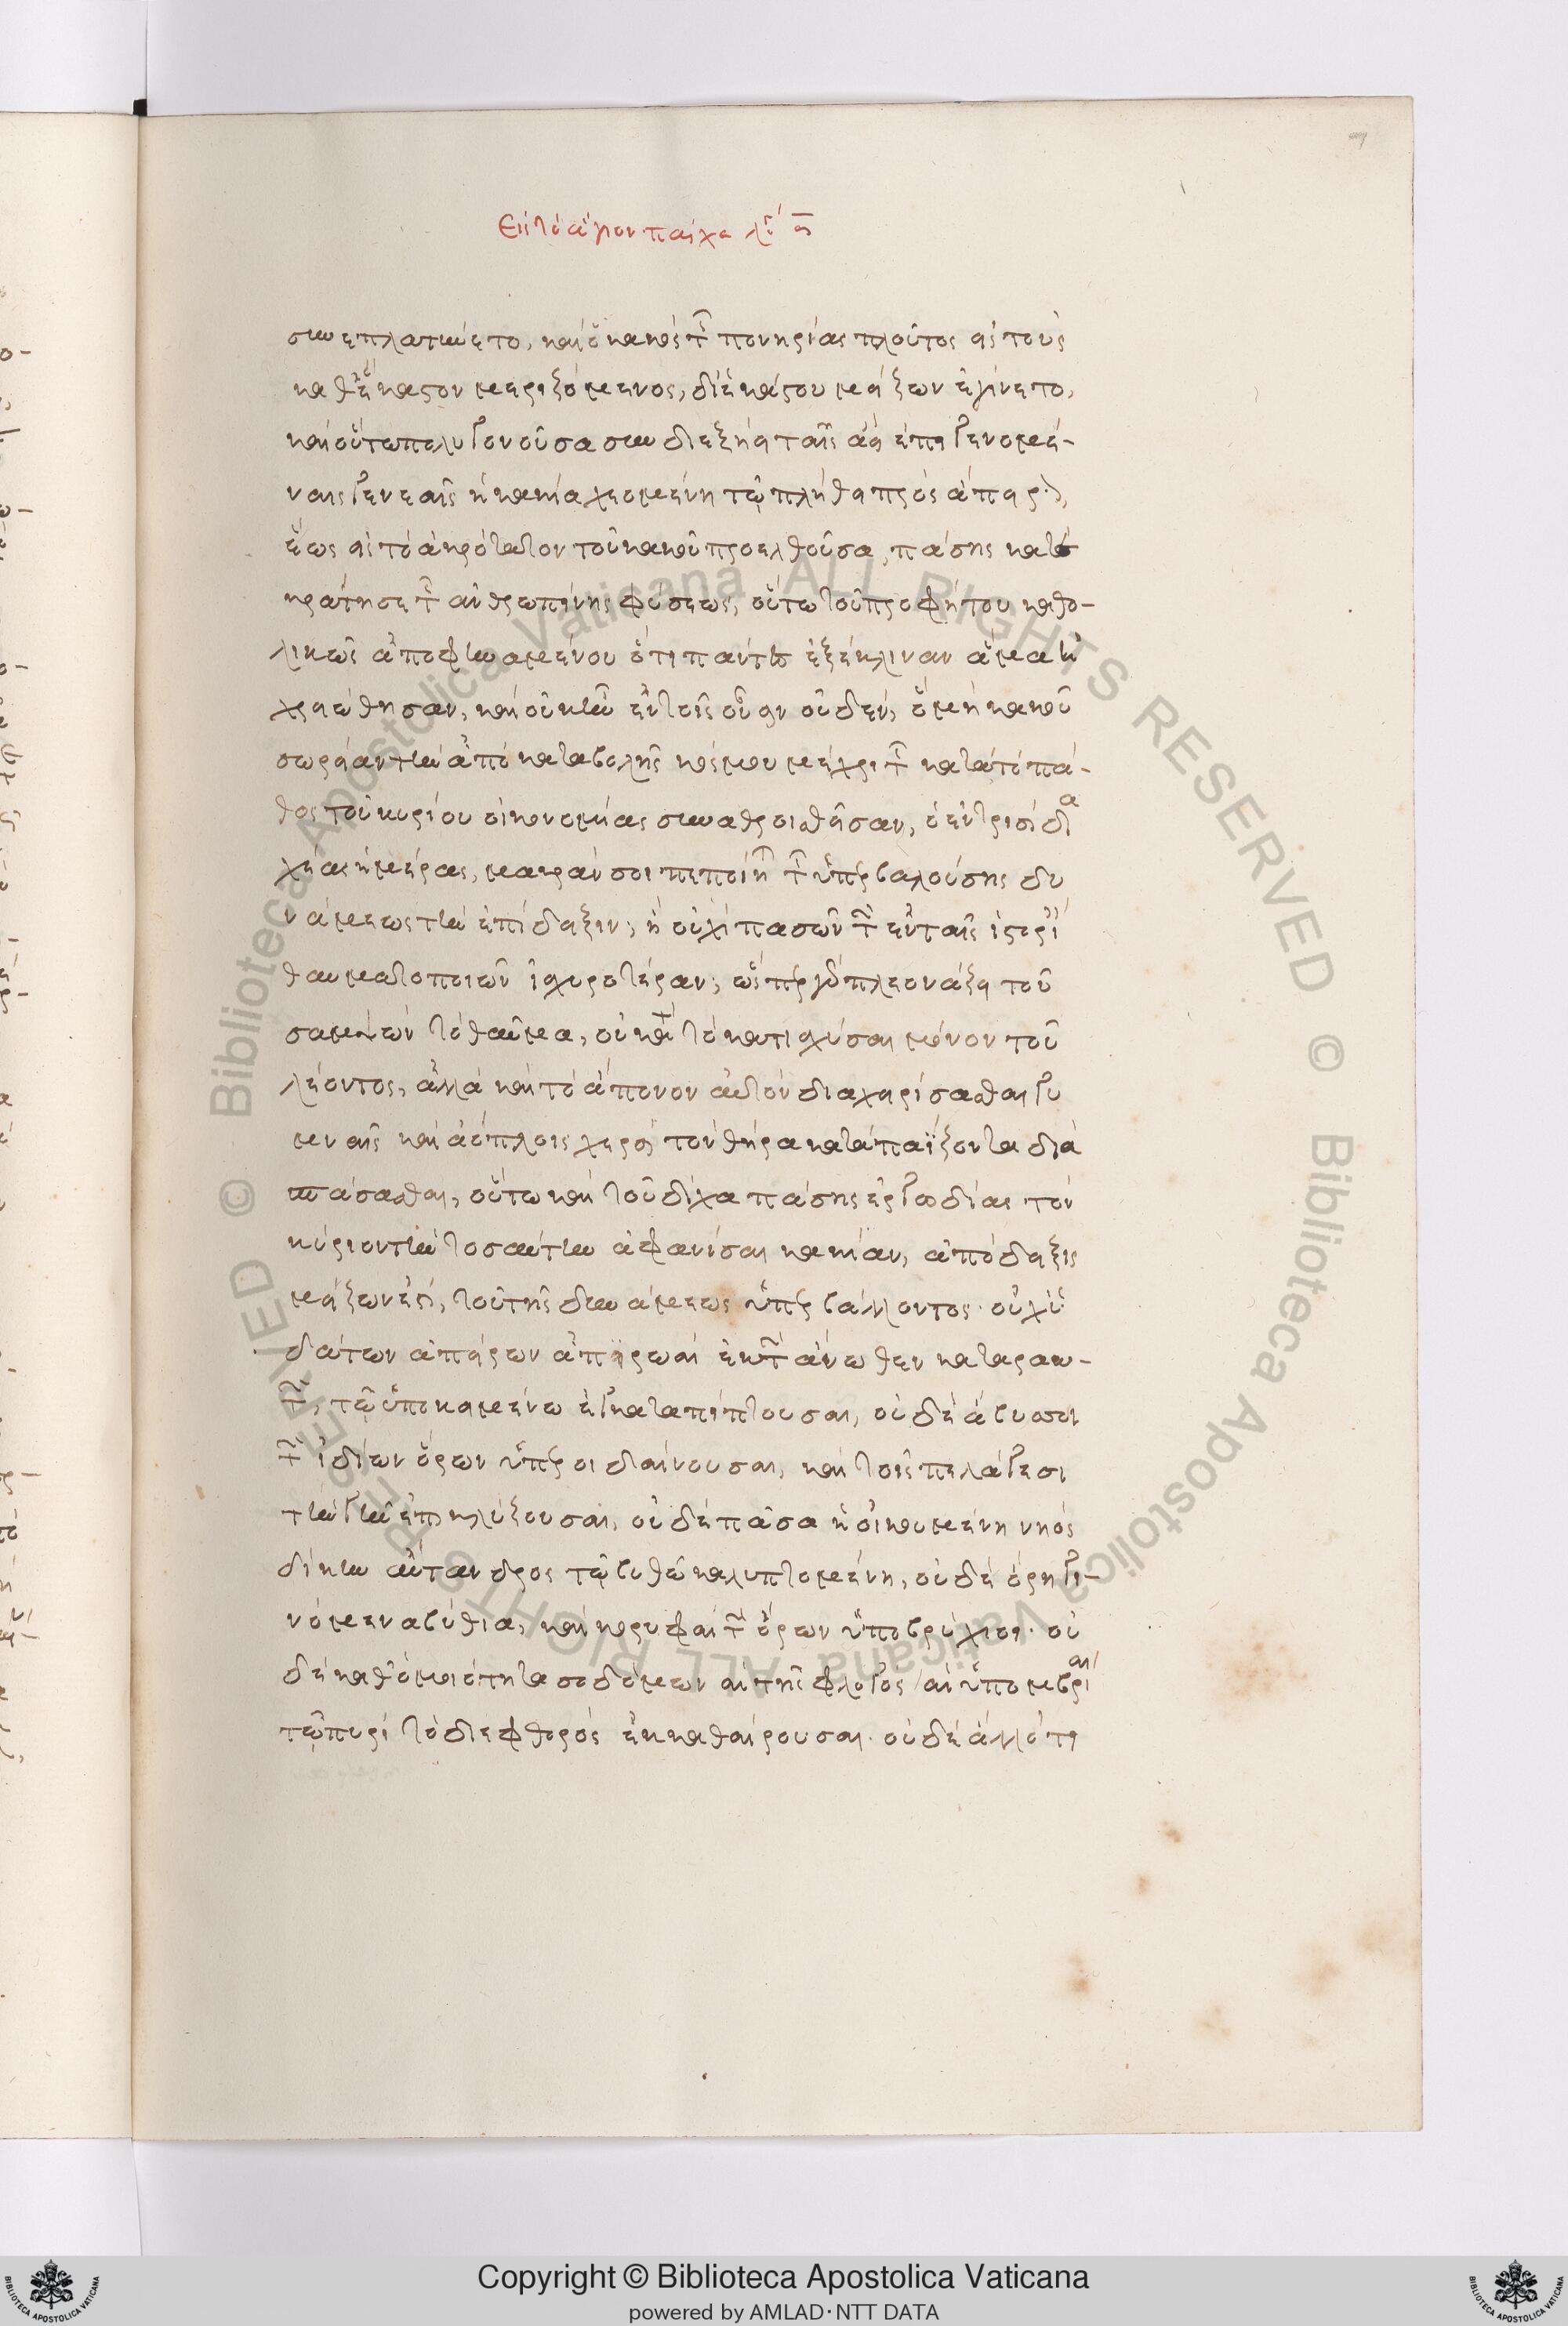 Εἰς τὸ ἅγιον πάσχα λό α
συνεπλατύνετο, καὶ ὁ κακὸς τῆς πονηρίας πλοῦτος εἰς τοὺς
καθέκαστον μεριζόμενος, δι' ἑκάστου μείζων ἐγίνετο,
καὶ οὕτω πολυγονοῦσα συνδιεξῄει ταῖς ἀεὶ ἐπιγενομέ-
ναις γενεαῖς ἡ κακία χεομένη τῷ πλήθει πρὸς ἄπειρον,
ἕως εἰς τὸ ἀκρότατον τοῦ κακοῦ προελθοῦσα, πάσης κατε
κράτησε τῆς ἀνθρωπίνης φύσεως, οὕτω τοῦ προφήτου καθο-
λικῶς ἀποφηναμένου ὅτι πάντες ἐξέκλιναν ἅμα
ἠχρειώθησαν, καὶ οὐκ ἦν ἐν τοῖς οὖσιν οὐδὲν, ὃ μὴ κακοῦ
σωρείαν τὴν ἀπὸ καταβολῆς κόσμου μέχρι τῆς κατὰ τὸ πά-
θος τοῦ κυρίου οἰκονομίας συναθροισθεῖσαν, ὁ ἐν τρισὶ δια
χέας ἡμέραις, μικρὰν σοι πεποίηται τῆς ὑπερβαλούσης δυ
νάμεως τὴν ἐπίδειξιν; ἢ οὐχὶ πασῶν τῶν ἐν ταῖς ἱστορίαις
θαυματοποιῶν ἰσχυροτέραν; ὥσπερ γὰρ πλεονάζει τοῦ
σαμψὼν τὸ θαῦμα, οὐ κατὰ τὸ κατισχύσαι μόνον τοῦ
λέοντος, ἀλλὰ καὶ τὸ ἄπονον αὐτὸν διαχειρίσασθαι γυ
μναῖς καὶ ἀόπλοις χερσὶ τὸν θῆρα καταπαίζοντα δια
σπάσασθαι, οὕτω καὶ τοῦ δίχα πάσης ἐργωδίας τὸν
κύριον τὴν τοσαύτην ἀφανίσαι κακίαν, ἀπόδειξις
μείζων ἐστί, τοῦ τῆς δυνάμεως ὑπερβάλλοντος· οὐχὶ ὑ
δάτων ἀπείρων ἀπειρίαι ἐκ τῶν ἄνωθεν καταρακ-
τῶν, τῷ ὑποκειμένῳ ἐγκαταπίπτουσαι, οὐδὲ ἄβυσσοι
τῶν ἰδίων ὅρων ὑπεροιδαίνουσαι, καὶ τοῖς πελάγεσι
τὴν γῆν ἐπικλύζουσαι, οὐδὲ πᾶσα ἡ οἰκουμένη νηὸς
δίκην αὔτανδρος τῷ βυθῷ καλυπτομένη, οὐδὲ ὄρη γι-
νόμενα βύθια, καὶ κορυφαὶ τῶν ὀρῶν ὑποβρύχιοι· οὐ
δὲ καθ' ὁμοιότητα σοδόμων αἱ τῆς φλογὸς αἱ ὑπομβρίαι
τῷ πυρὶ τὸ διεφθορὸς ἐκκαθαίρουσαι· οὐδὲ ἄλλό τι